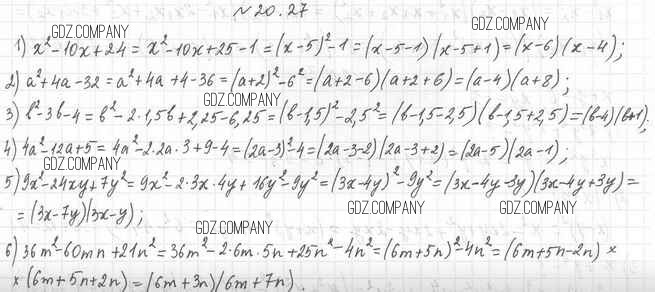 № 20.27
GDZ.COMPANY GDZ.COMPANY
1) x² - 10x + 24 = x² - 10x + 25 - 1 = (x - 5)² - 1 = (x - 5 - 1)(x - 5 + 1) = (x - 6)(x - 4);
2) a² + 4a - 32 = a² + 4a + 4 - 36 = (a + 2)² - 6² = (a + 2 - 6)(a + 2 + 6) = (a - 4)(a + 8);
GDZ.COMPANY
3) b² - 3b - 4 = b² - 2 · 1,5b + 2,25 - 6,25 = (b - 1,5)² - 2,5² = (b - 1,5 - 2,5)(b - 1,5 + 2,5) = (b - 4)(b + 1);
4) 4a² - 12a + 5 = 4a² - 2 · 2a · 3 + 9 - 4 = (2a - 3)² - 4 = (2a - 3 - 2)(2a - 3 + 2) = (2a - 5)(2a - 1);
GDZ.COMPANY
5) 9x² - 24xy + 7y² = 9x² - 2 · 3x · 4y + 16y² - 9y² = (3x - 4y)² - 9y² = (3x - 4y - 3y)(3x - 4y + 3y) =
GDZ.COMPANY GDZ.COMPANY
= (3x - 7y)(3x - y);
GDZ.COMPANY
6) 36m² - 60mn + 21n² = 36m² - 2 · 6m · 5n + 25n² - 4n² = (6m + 5n)² - 4n² = (6m + 5n - 2n) ×
× (6m + 5n + 2n) = (6m + 3n)(6m + 7n).